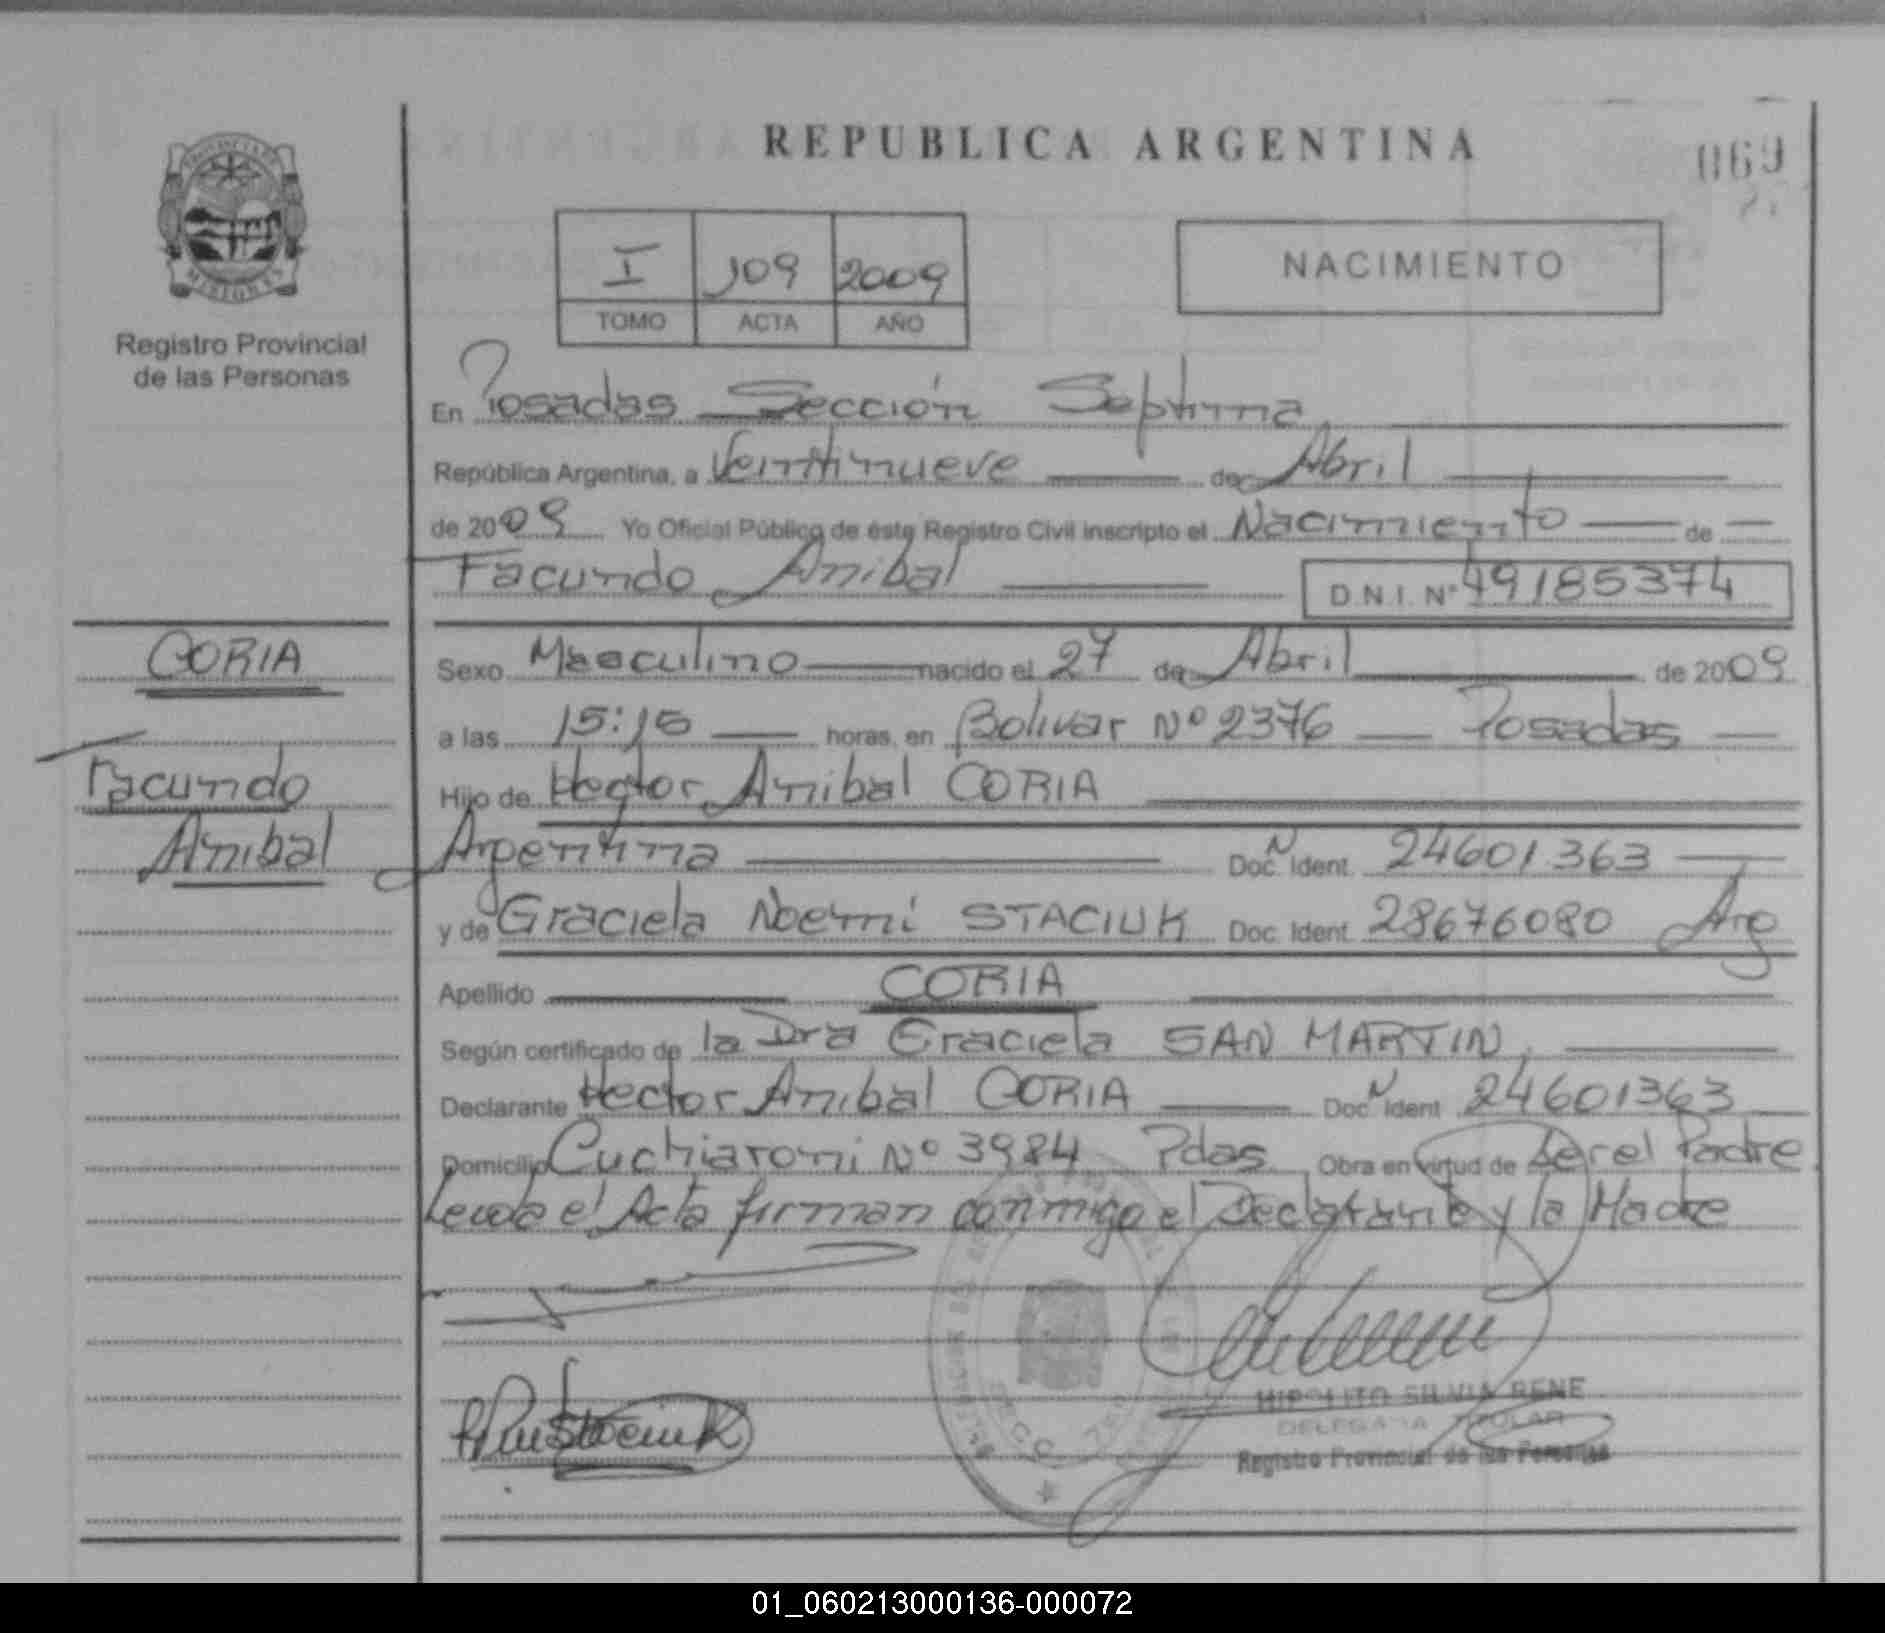 REPUBLICA ARGENTINA
069
PROVINCIA DE
MISIONES
Registro Provincial
de las Personas
I 109 2009
TOMO ACTA AÑO
NACIMIENTO
En Posadas Sección Septima
República Argentina, a Veintinueve de Abril
de 2009 Yo Oficial Público de éste Registro Civil inscripto el Nacimiento de
Facundo Anibal D.N.I. Nº 49185374
CORIA
Facundo
Anibal
Sexo Masculino nacido el 27 de Abril de 2009
a las 15:15 horas, en Bolivar Nº 2376 Posadas
Hijo de Hector Anibal CORIA
Argentina Doc. N Ident. 24601363
y de Graciela Noemi STACIUK Doc. Ident. 28676080 Arg
Apellido CORIA
Según certificado de la Dra Graciela SAN MARTIN,
Declarante Hector Anibal CORIA Doc. N Ident. 24601363
Domicilio Cuchiaroni Nº 3984 Pdas Obra en virtud de Ser el Padre
Leida el Acta firman conmigo el Declarante y la Madre
HIPOLITO SILVIA RENE
DELEGADA TITULAR
Registro Provincial de las Personas
01_060213000136-000072